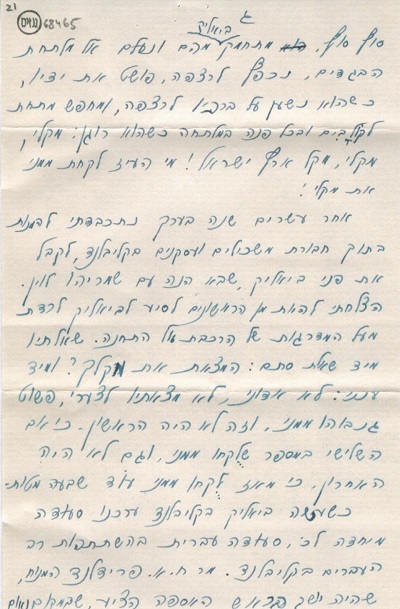 21
68465
ג
ביאליק
סוף סוף, מתחמק מהם ונעלם אל מלתחת
הבגדים, נכפף לרצפה, פושט את ידיו,
כשהוא נשען על ברכיו לרצפה, ומחפש מתחת
לקולבים ובכל פנה במלתחה כשהוא רוגן: מקלי,
מקלי, מקל ארץ ישראל! מי הרעיז לקחת ממני
את מקלי!
אחר עשרים שנה בערך נתכבדתי להמנות
בתוך חבורת משכילים ועסקנים בקליבלנד, לקבל
את פני ביאליק, שבא הנה עם שמריהו לוין.
הצלחתי להיות מן הראשונים לסייע לביאליק לרדת
מעל המדרגות של הרכבת אל התחנה. שאלתיו
מיד שאלת סתם: המצאת את מקלך? ומיד
ענני: לא אדוני, לא מצאתיו לצערי, פשוט
גנבוהו ממני, וזה לא היה הראשון. כי אם
השלישי במספר שלקחו ממני, וגם לא היה
האחרון, כי מאז לקחו ממני עוד שבעה מטות.
כשעשה ביאליק בקליבלנד ערכנו סעודה
מיוחדה לכ', סעודה עברית בהשתתפות רב
העברים בקליבלנד. מר ח.א. פרידלנד המנוח,
שהיה יושב בראש האספה הציע, שבמקום נאום